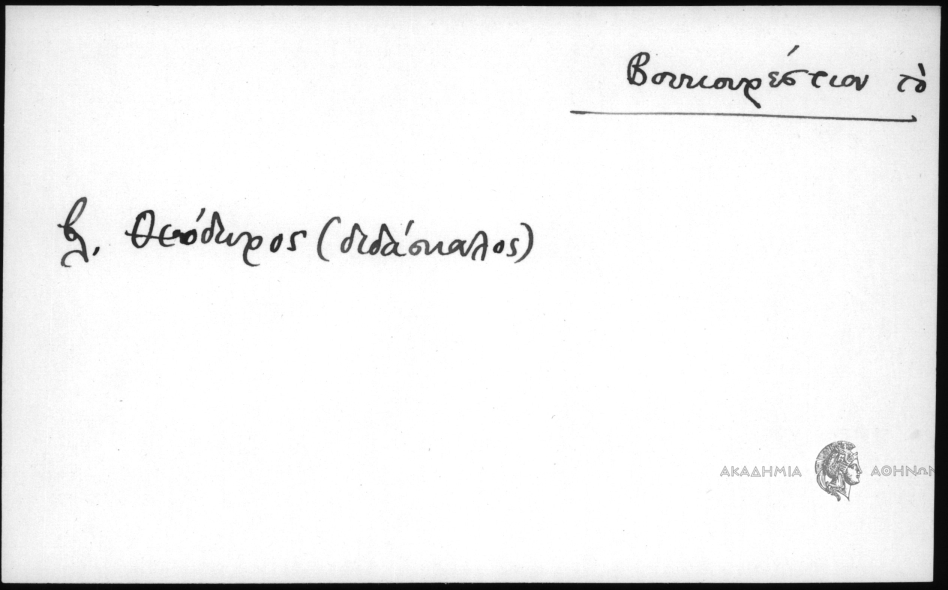 Βουκουρέστιον τὸ
βλ. Θεόδωρος (διδάσκαλος)
ΑΚΑΔΗΜΙΑ ΑΘΗΝΩΝ